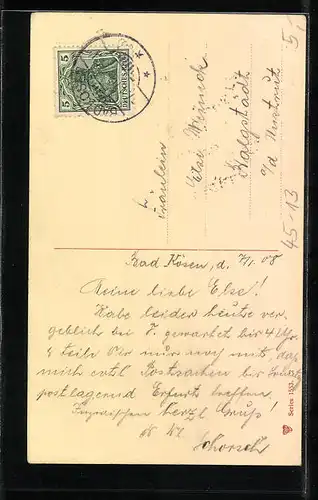 5
DEUTSCHES REICH
5
Fräulein
Else Münnich
Balgstädt
a/d Unstrut
5,-
45-13
Bad Kösen, d. 7/1. 08
Meine liebe Else!
Habe leider heute ver-
geblich bei gewartet bis 4 Uhr,
teile Dir nur noch mit, daß
mich evtl Postsachen bis
postlagernd Erfurt treffen.
Inzwischen herzl Gruß!
Schorsch
Series 1537